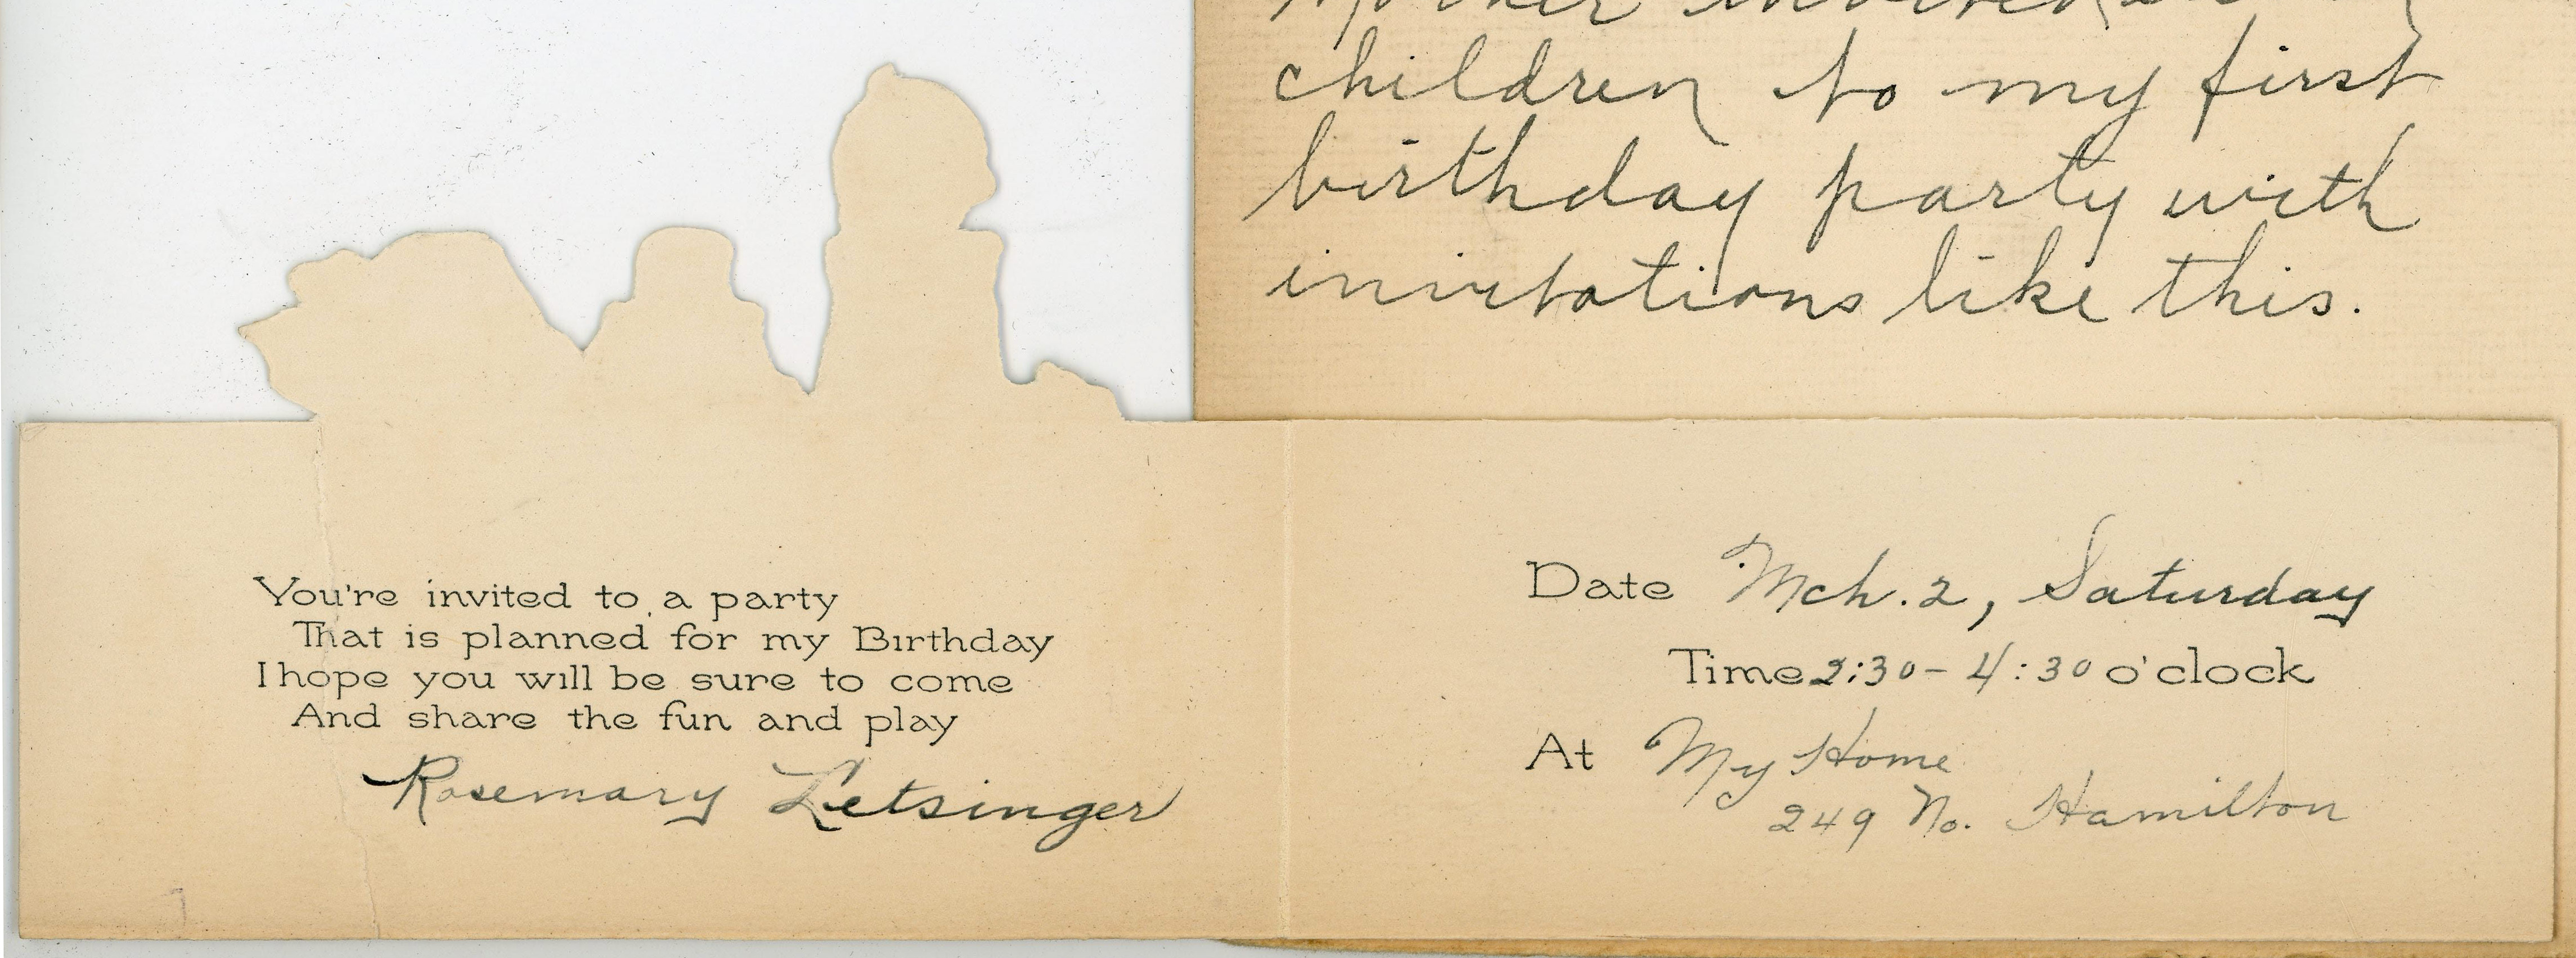 Mother invited
children to my first
birthday party with
invitations like this.
You're invited to a party
That is planned for my Birthday
I hope you will be sure to come
And share the fun and play
Rosemary Letsinger
Date Mch. 2, Saturday
Time 2:30 - 4:30 o'clock
At My Home
249 No. Hamilton